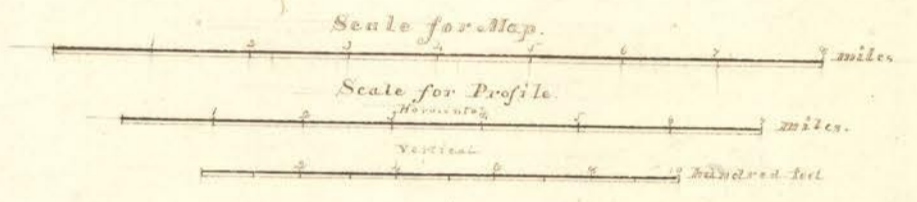 Scale for Map.
1 2 3 4 5 6 7 8 miles
Scale for Profile.
Horizontal
1 2 3 4 5 6 7 miles.
Vertical
2 4 6 8 10 hundred feet